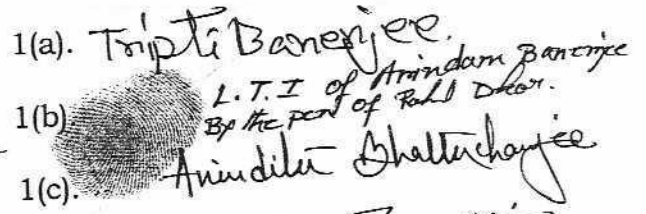 1(a). Tripti Banerjee.
L.T.I of Arindam Banerjee
1(b) By the pen of Rahul Dhar.
1(c). Anindita Bhattacharjee